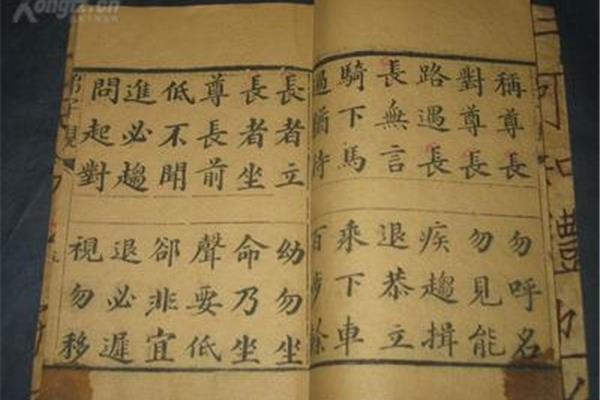 稱尊長 勿呼名
對尊長 勿見能
路遇長 疾趨揖
長無言 退恭立
騎下馬 乘下車
過猶待 百步餘
長者立 幼勿坐
長者坐 命乃坐
尊長前 聲要低
低不聞 卻非宜
進必趨 退必遲
問起對 視勿移
弟子規